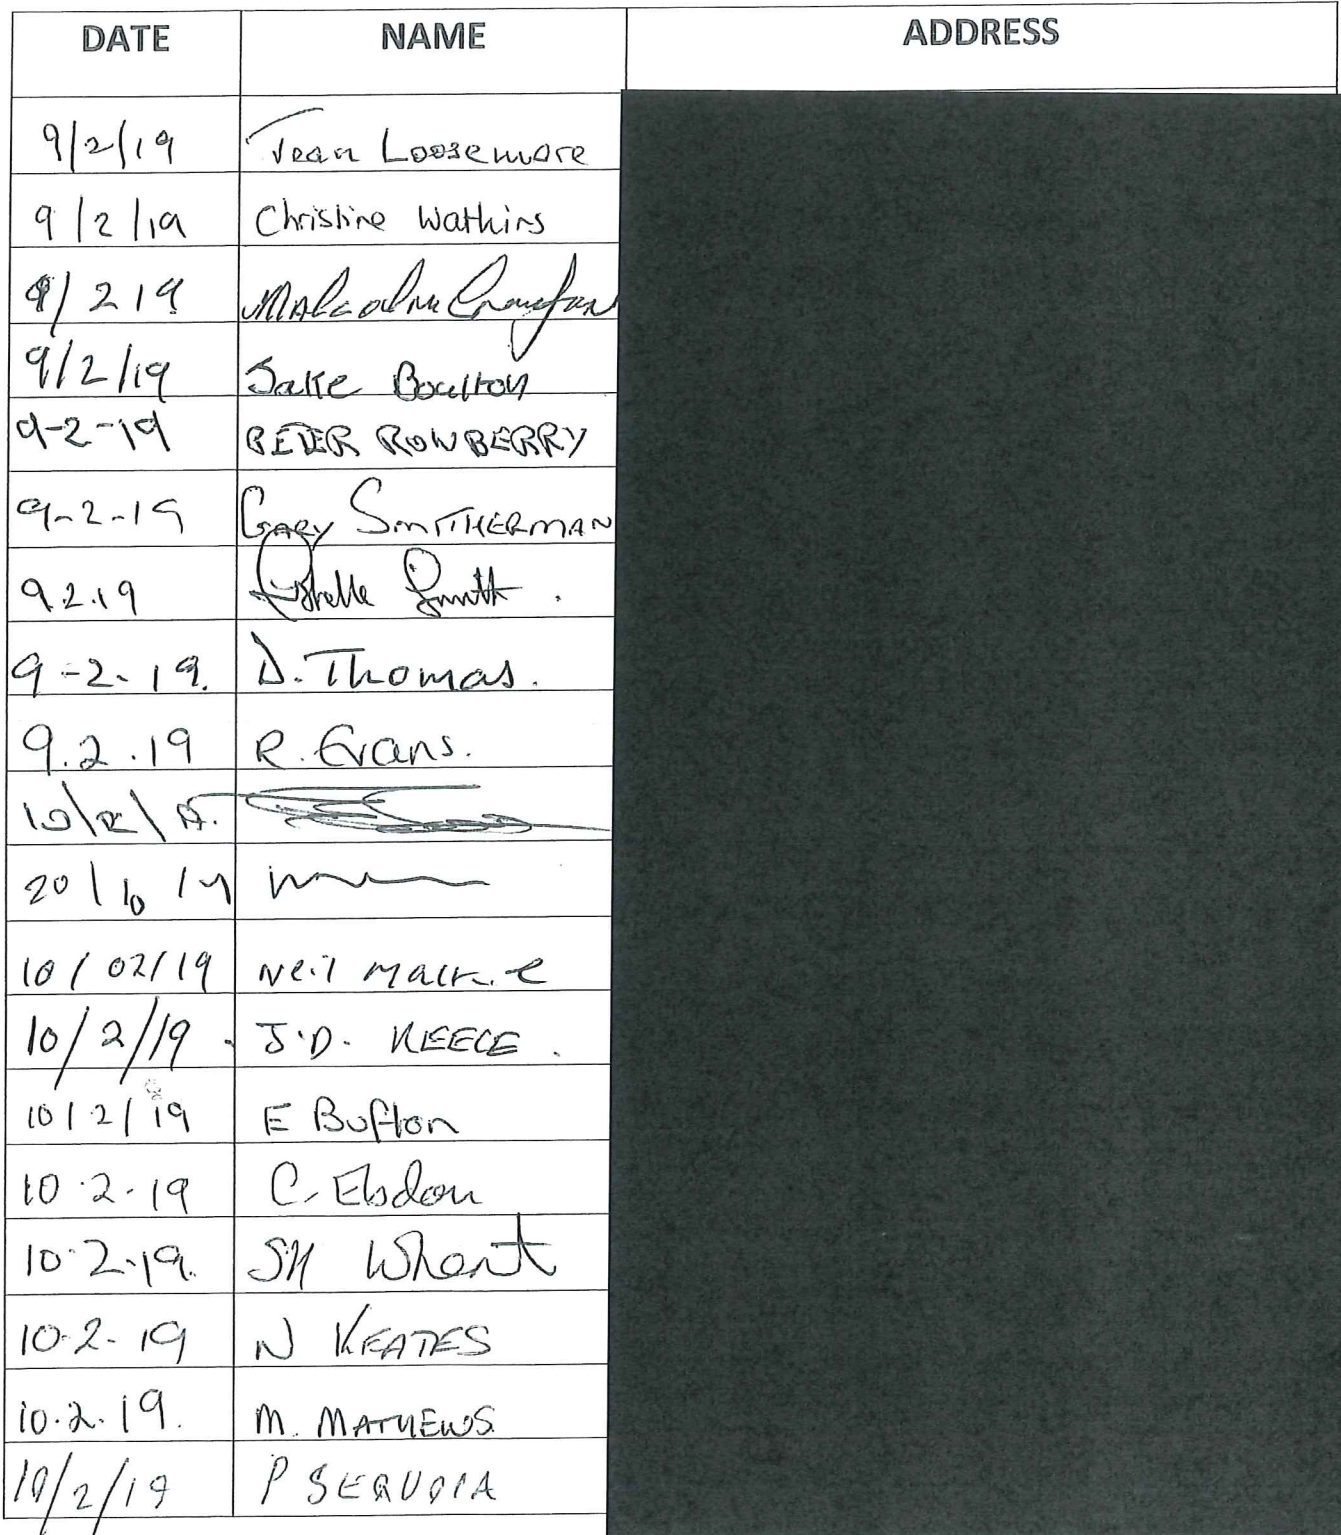 DATE NAME ADDRESS
9/2/19 Jean Loosemore
9/2/19 Christine Watkins
9/2 19 Malcolm
9/2/19 Jake Boulton
9-2-19 PETER ROWBERRY
9-2-19 GARY SMITHERMAN
9.2.19 Estelle Smith.
9-2-19. D. Thomas.
9.2.19 R. Evans.
10/2/19.
20/10/19
10/02/19 Neil Mackie
10/2/19. J.D. REECE.
10/2/19 E Bufton
10.2.19 C. Ebdon
10.2.19. SH Whent
10.2.19 N KEATES
10.2.19. M. MATHEWS
10/2/19 P SEQUOIA